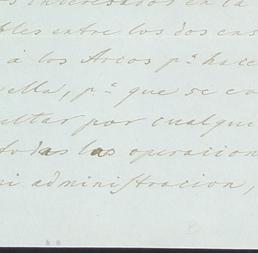 interesados en la
bles entre los dos cas
á los Arcos p.ª hace
ella, p.ª que se co
ultar por cualqui
todas las operacion
mi administracion,